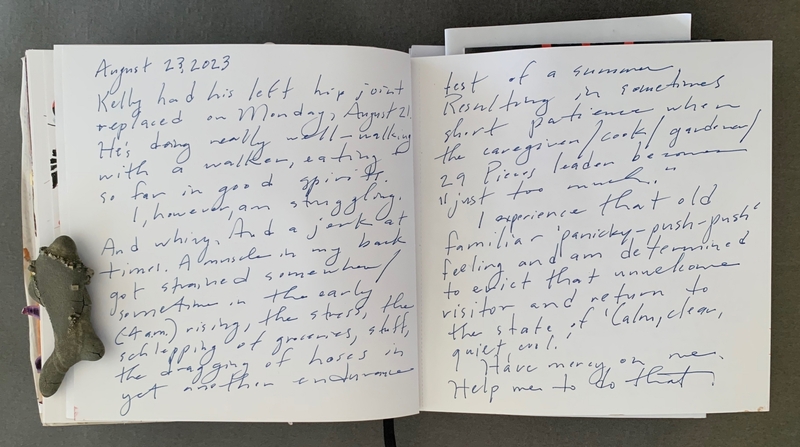 August 23, 2023
Kelly had his left hip joint
replaced on Monday, August 21.
He's doing really well - walking
with a walker, eating +
so far in good spirits.
I, however, am struggling.
And whiny. And a jerk at
times. A muscle in my back
got strained somewhere/
sometime in the early
(4am) rising, the stress, the
schlepping of groceries, stuff,
the dragging of hoses in
yet another endurance
test of a summer.
Resulting in sometimes
short patience when
the caregiver/cook/gardener/
29 Pieces leader becomes
"just too much."
I experience that old
familiar 'panicky-push-push'
feeling and am determined
to evict that unwelcome
visitor and return to
the state of 'Calm, clear,
quiet, cool.'
Have mercy on me.
Help me to do that.